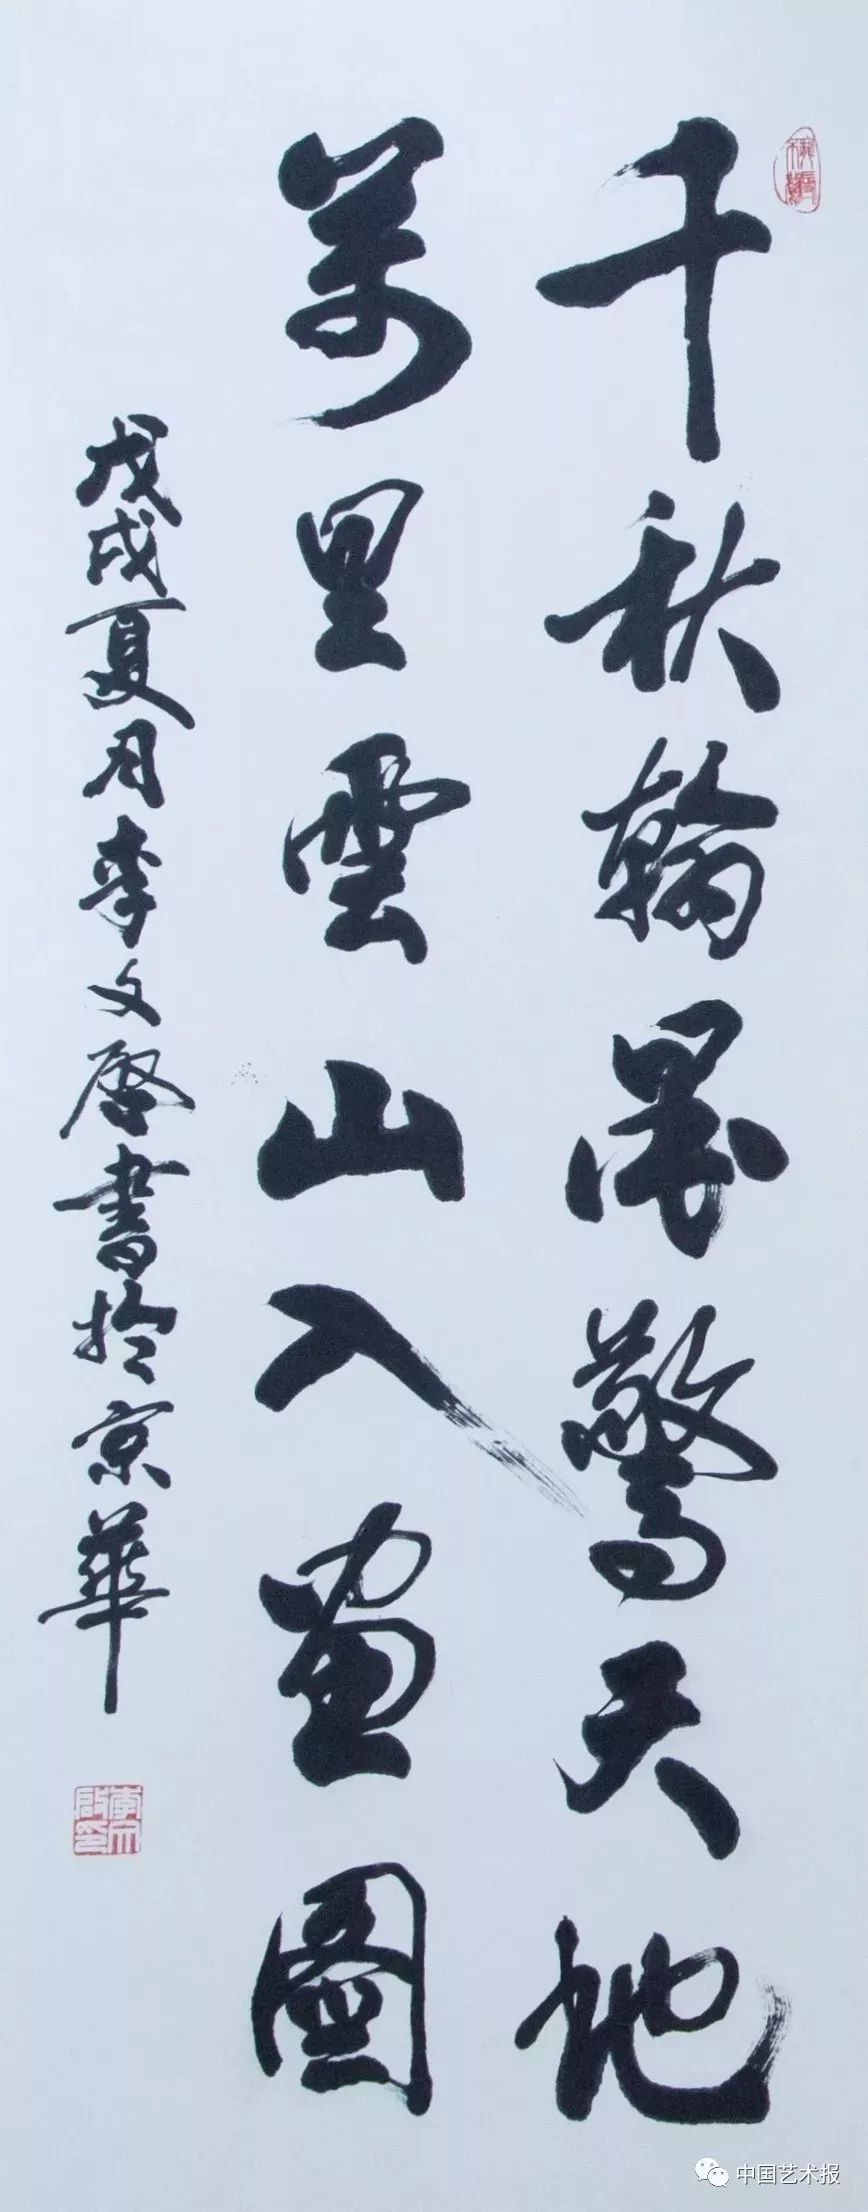 千秋翰墨驚天地
萬里雲山入畫圖
戊戌夏月李文啓書於京華
李文啟印
中国艺术报